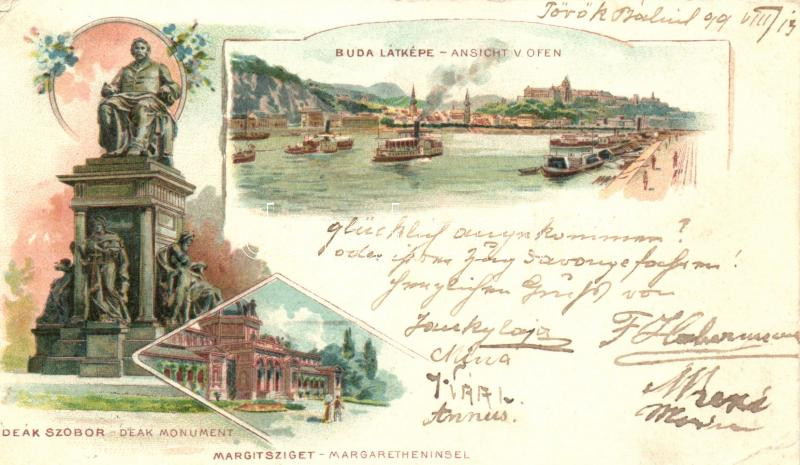 Török Bálint 99 VIII/13
BUDA LÁTKÉPE - ANSICHT V OFEN
glücklich angekommen?
oder ist der Zug davongefahren!
herzlichen Gruß von
Nina
Annus.
DEÁK SZOBOR - DEAK MONUMENT
MARGITSZIGET - MARGARETHENINSEL